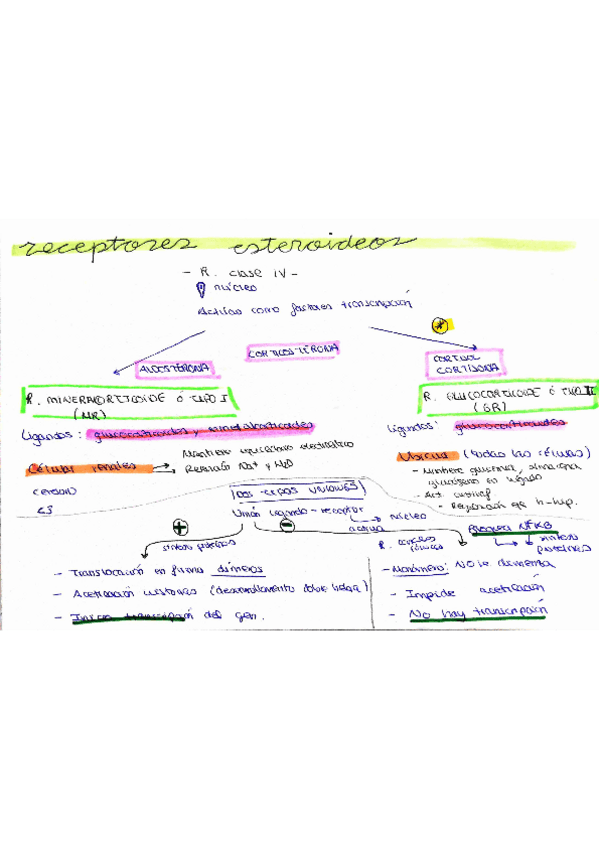 receptores esteroideos
- R. clase IV -
núcleo
Actúan como factores transcripción
*
ALDOSTERONA
CORTICOSTERONA
CORTISOL
CORTISONA
R. MINERALCORTICOIDE Ó TIPO I
(MR)
R. GLUCOCORTICOIDE Ó TIPO II
(GR)
Ligandos: glucocorticoides y mineralcorticoides
Ligandos: glucocorticoides
Células renales
Mantiene equilibrio electrolítico
Retención Na+ y H2O
Ubicua (todas las células)
- Mantiene glucemia,
glucógeno en hígado
- Act.
- Regulación eje h-hip.
DOS TIPOS UNIONES
Unión ligando-receptor
núcleo
activa
+
-
síntesis proteínas
R.
Bloquea NFKB
síntesis
proteínas
- Translocación en forma dímeros
- Acetilación histonas (desenrollamiento doble hélice)
- Inicia transcripción del gen.
- Monómero: NO se dimeriza
- Impide acetilación
- No hay transcripción